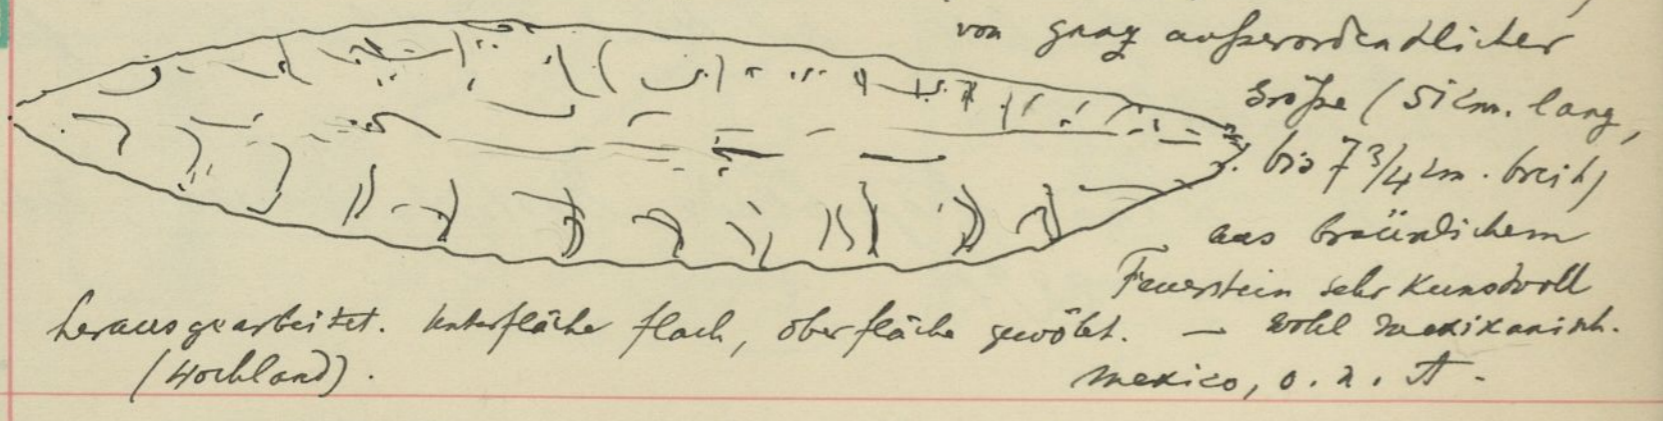 von ganz außerordendlicher
Größe (51 cm. lang,
bis 7 3/4 cm. breit)
aus bräunlichem
Feuerstein sehr kunstvoll
herausgearbeitet. Unterfläche flach, Oberfläche gewölbt. — Wohl mexikanisch.
(Hochland).
Mexico, o. n. A.